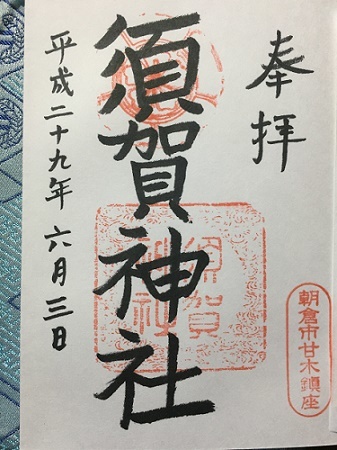 奉拝
朝倉市甘木鎮座
須賀神社
須賀
神社
平成二十九年六月三日